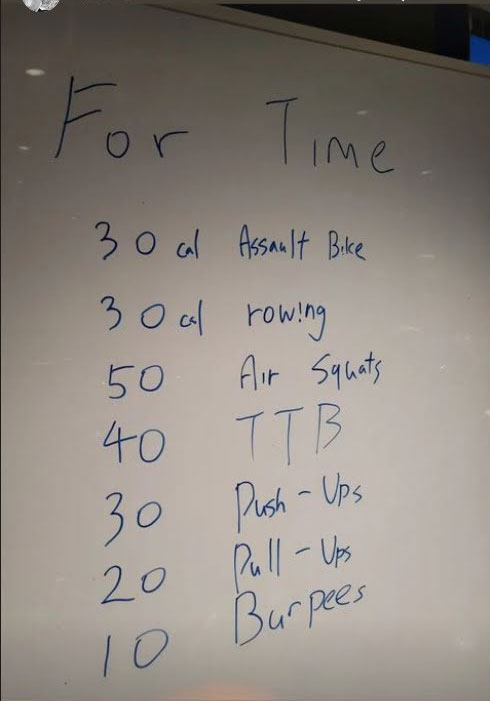 For Time
30 cal Assault Bike
30 cal rowing
50 Air Squats
40 TTB
30 Push-Ups
20 Pull-Ups
10 Burpees